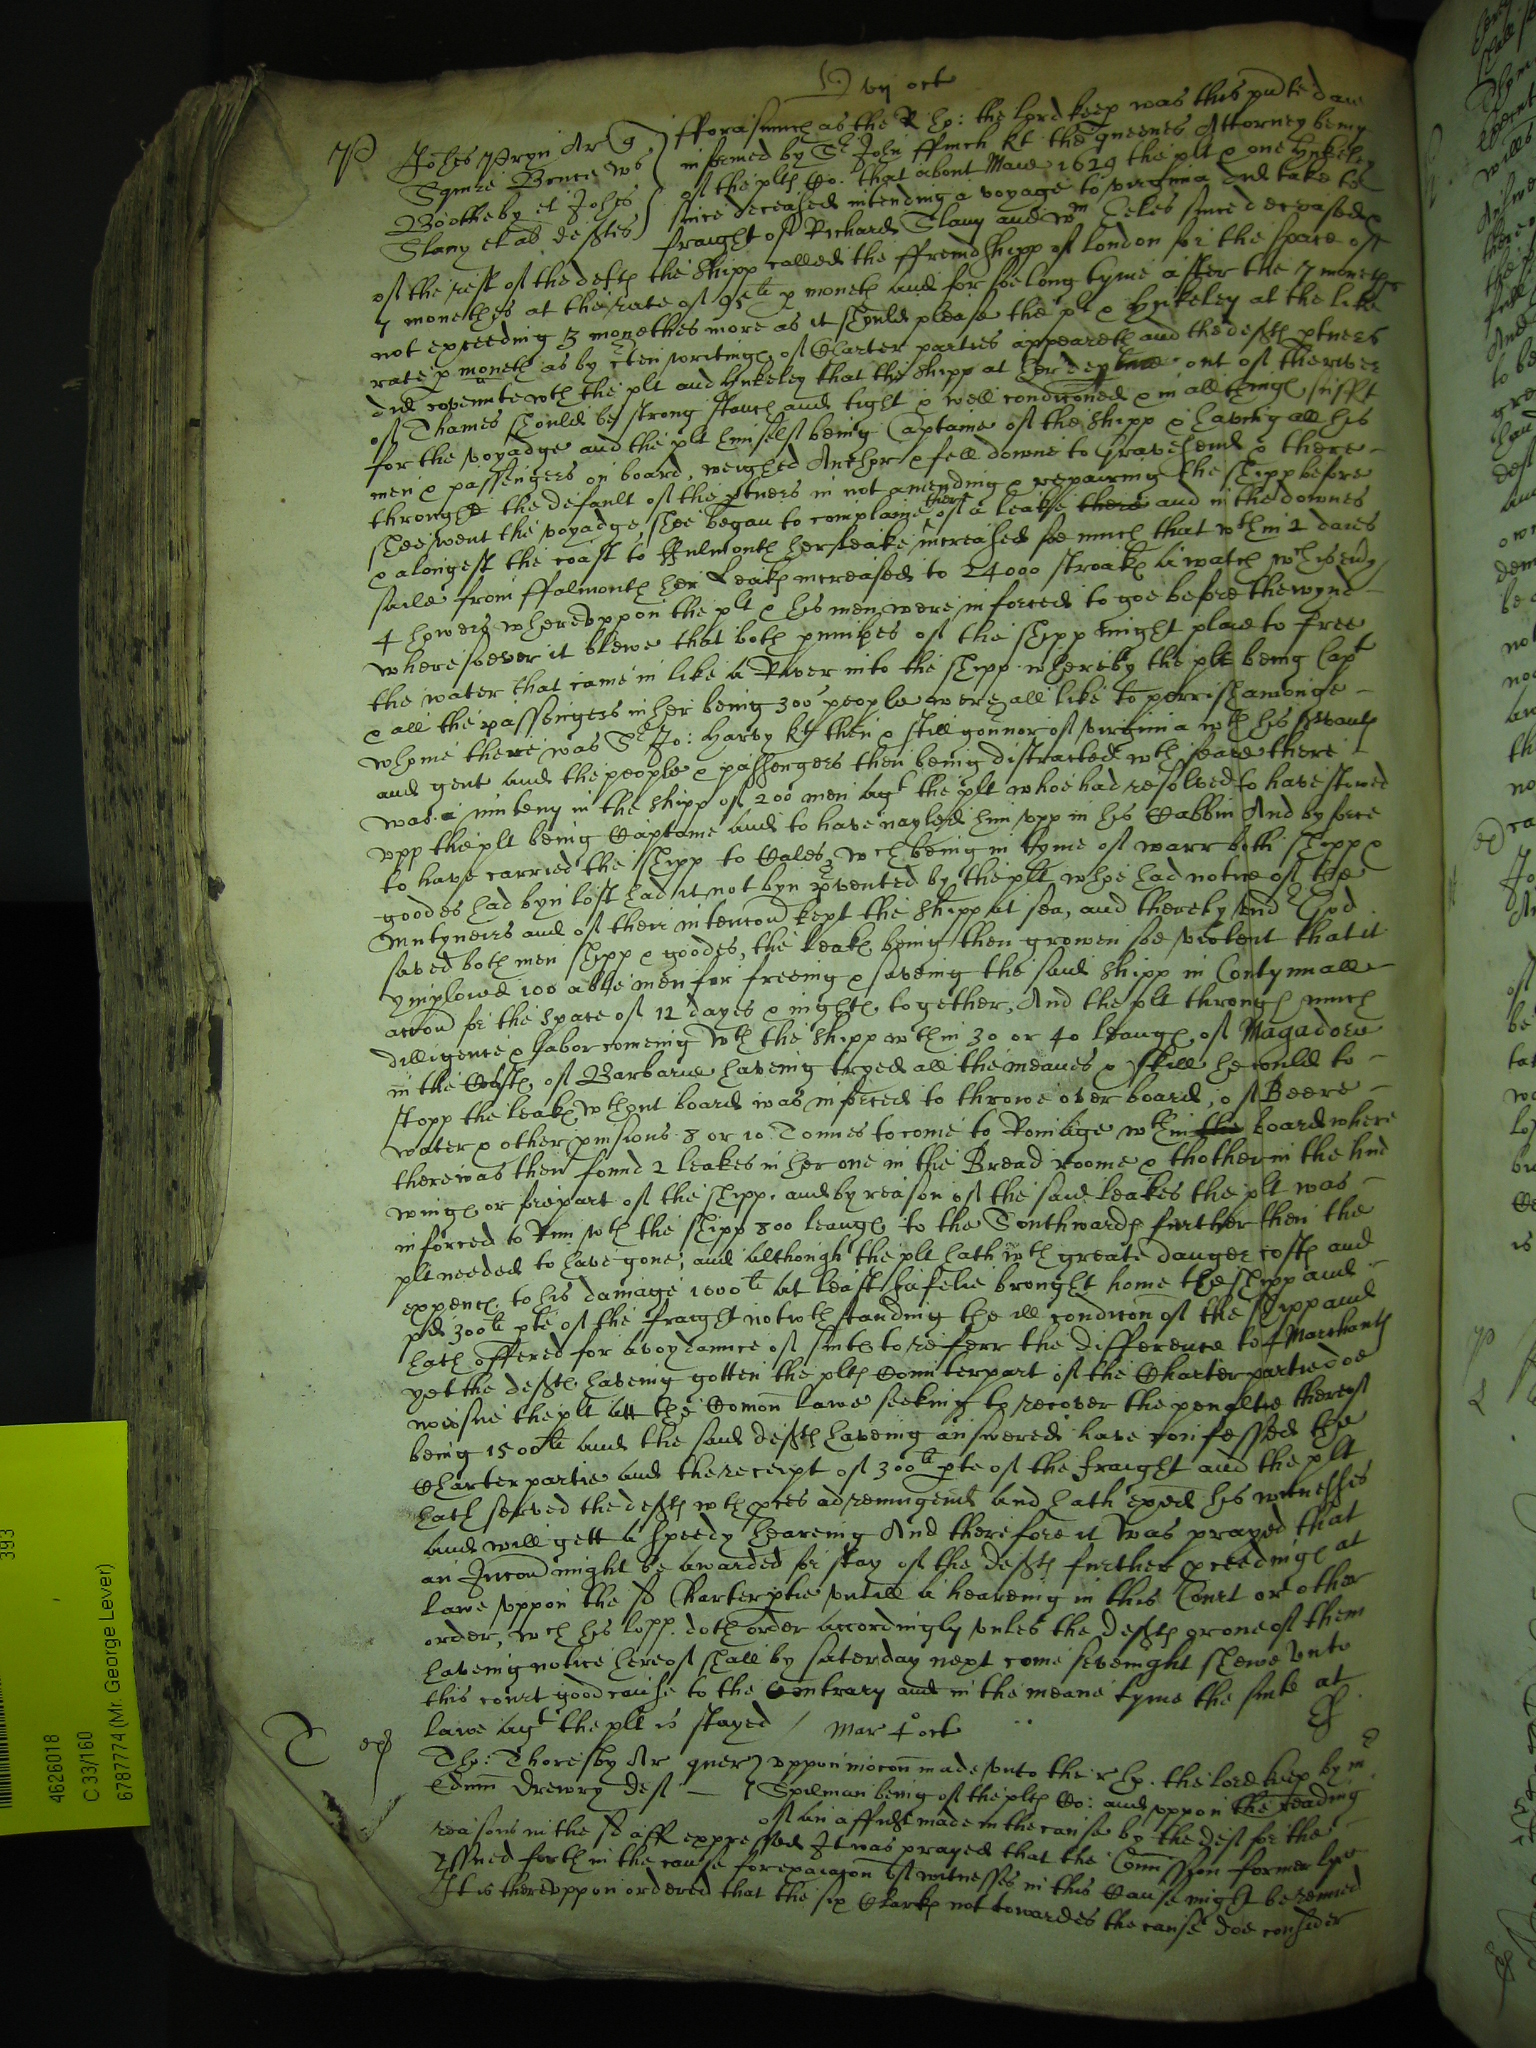 vij oct
P Johes Pryn Ar q
Squire Bence Ws
Bootheby et Johes
Slany et ab defttes
fforasmuch as the R Ho: the lord keep was this pnte daie
informed by Sr John ffinch kt the queenes Attorney being
of the plts Co. that about Maie 1629 the plt & one Hnkeley
since deceased intending a voyage to virginia did take to
fraight of Richard Slany and Wm Celes since deceased &
of the rest of the defts the shipp called the ffreindshipp of london for the space of
7 monethes at the rate of 95li p moneth and for soe long tyme after the 7 moneths
not exceeding 3 monethes more as it should please the plt & Hnkeley at the like
rate p moneth as by cten writings of Charter parties appeareth and the defts ptners
did covennte wth the plt and Hnkeley that the shipp at her out of the river
of Thames should be strong stanch and tight & well conditioned & in all things suffit
for the voyadge and the plt himself being Captaine of the shipp & having all his
men & passengers on board, weighed Anchor & fell downe to Gravesend & there
through the default of the ptners in not amending & repairing the shipp before
shee went the voyadge shee began to complaine there of a leake there and in the downes
& alongest the coast to ffulmouth her leake increased soe much that wthin 2 daies
saile from ffalmouth her Leake increased to 24000 stroaks a watch wch is every
4 howers whereuppon the plt & his men were inforced to goe before the wynd
wheresoever it blewe that both pumpes of the shipp might plaie to free
the water that came in like a River into the shipp whereby the plt being Capt
& all the passengers in her being 300 people were all like to perrish amonge
whome there was Sr Jo: Harvy kt then & still gounor of virginia wth his servants
and gent and the people & passengers then being distracted wth feare there
was a muteny in the shipp of 200 men agt the plt whoe had resolved to have stowed
upp the plt being Captaine and to have nayled him upp in his Cabbin And by force
to have carried the shipp to Cales, wch being in tyme of warr both shipp &
goodes had byn lost had it not byn pvented by the plt whoe had notice of the
Mutyneers and of their intencon kept the shipp at sea, and thereby und God
saved both men shipp & goodes, the leake being then growen soe violent that it
ymploied 100 able men for freeing & saveing the said shipp in Contynuall
accon for the space of 12 dayes & nights together, And the plt through much
dilligence & labor comeing wth the shipp wthin 30 or 40 leaugs of Magadore
in the Coste of Barbarie haveing tryed all the meanes & skill he could to
stopp the leake wthout board was inforced to throwe over board, of Beere
water & other pvisions 8 or 10 Tonnes to come to Romage wthin the board where
there was then found 2 leakes in her one in the Bread roome & thother in the hind
wings or forepart of the shipp. and by reason of the said leakes the plt was
inforced to Run wth the shipp 800 leaugs to the Southwards further then the
plt needed to have gone; and although the plt hath wth greate danger costs and
expence to his damage 1000li at least safelie brought home the shipp and
pd 300li pte of the fraight notwthstanding the ill condicon of the shipp and
hath offered for avoydannce of suite to referr the difference to 4 Marchants
yet the defts haveing gotten the plts Counterpart of the Charterpartie doe
nowe sue the plt att the Comon Lawe seeking to recover the penaltie thereof
being 1500li and the said defts haveing answered have confessed the
Charterpartie and the receipt of 300li pte of the fraight and the plt
hath served the defts wth pces ad reiungend and hath exed his witnesses
and will gett a speedy hearing And therefore it was prayed that
an Jnccon might be awarded for stay of the defts further pceedings at
Lawe uppon the sd Charterptie untill a hearing in this Court or other
order, wch his lopp. doth order accordingly unles the defts or one of them
haveing notice hereof shall by saterday next come sevenight shewe unto
this court good cause to the Contrary and in the meane tyme the suite at
lawe agt the plt is stayed / Mar 4o oct
T Tho: Thoresby Ar quer
Edmu Drewry deft
uppon mocon made unto the r Ho. the lord keep by mr
Spilman being of the plts Co: and uppon the reading
of an affidt made in the cause by the deft for the
reasons in the sd aff expressed It was prayed that the Comission formerlye
yssued forth in the cause for exiacon of witnesses in this Cause might be renued
It is thereuppon ordered that the six Clarks not towardes the cause doe consider
393
4626018
C 33/160
6787774 (Mr. George Lever)